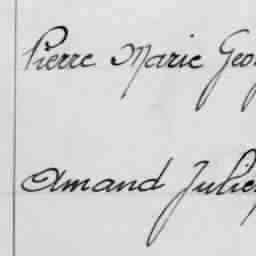 Pierre Marie Geo
Amand Julie